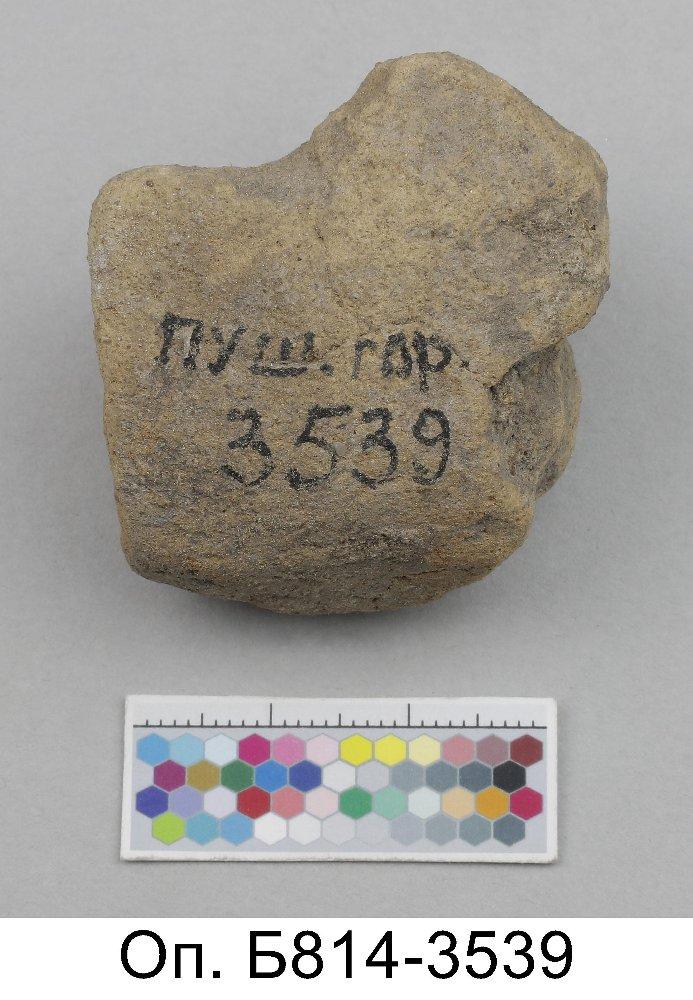 ПУШ. гвр.
3539
Оп. Б814-3539